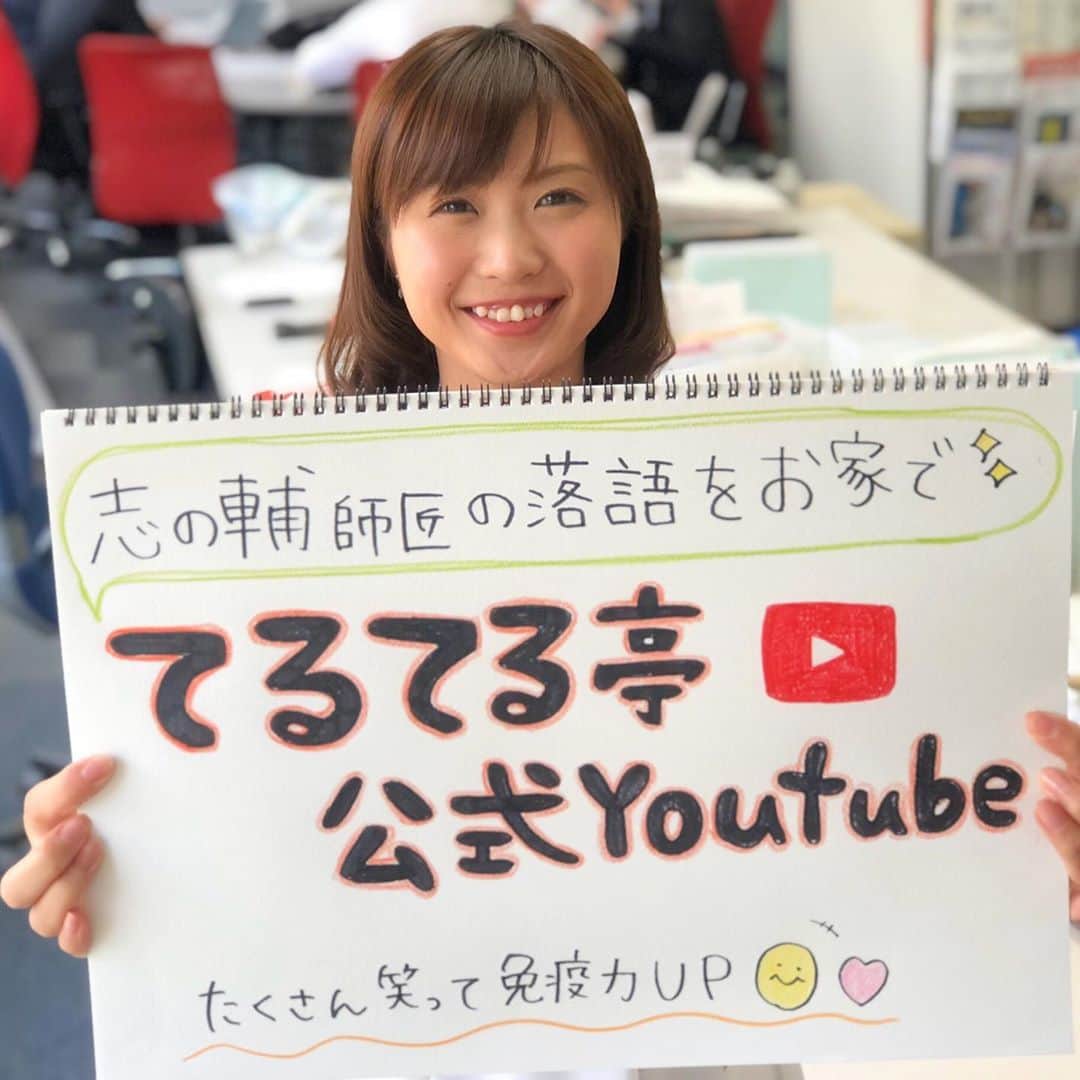 志の輔師匠の落語をお家で
てるてる亭
公式Youtube
たくさん笑って免疫力UP